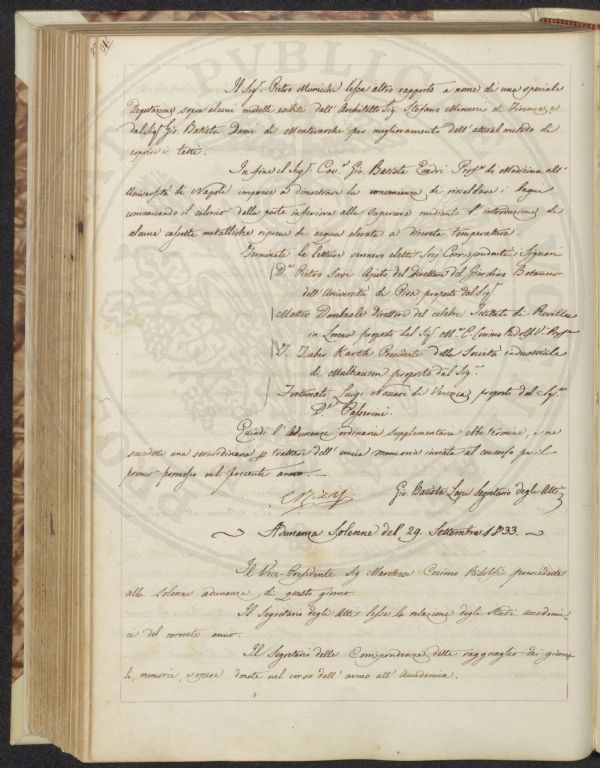 Il Sig.r Pietro Municchi lesse altro rapporto a nome di una speciale
Deputazione sopra alcuni modelli esibiti dall' Architetto Sig. Stefano Minucci di Firenze, e
dal Sig.r Gio. Batista Dami di Montevarchi per miglioramento dell' attual metodo di
coprire i tetti.
In fine il Sig.r Cav.e Gio. Batista Quadri Prof.re di Medicina all'
Università di Napoli imprese a dimostrare la convenienza di riscaldare i bagni
comunicando il calorico dalla parte inferiore alla superiore mediante l' introduzione di
alcune cassette metalliche ripiene di acqua elevata a discreta temperatura.
Terminate le letture vennero eletti Soci Corrispondenti i Signori
D.r Pietro Savi Ajuto del Direttore del Giardino Botanico
dell' Università di Pisa proposto dal Sig.r
Matteo Dombasle Direttore del celebre Istituto di Roville
in Lorena proposto dal Sig. M.se C. Cosimo Ridolfi V. Pres.
Zuber Karth Presidente della Società industriale
di Mulhausen proposto dal Sig.r
Fortunato Luigi Naccari di Venezia, proposto dal Sig.r
D.r Passerini.
Quindi l' Adunanza ordinaria supplementaria ebbe termine, e ne
succedette una straordinaria p trattare dell' unica memoria inviata al concorso pe il
premio promesso nel presente anno.
Gio. Batista Lapi Segretario degli Atti
Adunanza Solenne del 29. Settembre 1833.
Il Vice-Presidente Sig Marchese Cosimo Ridolfi presiedette
alla solenne adunanza di questo giorno.
Il Segretario degli Atti lesse la relazione degli Studi accademi-
ci del corrente anno.
Il Segretario delle Corrispondenze dette ragguaglio dei giorna
li, memorie, e opere donate nel corso dell' anno all' Accademia.